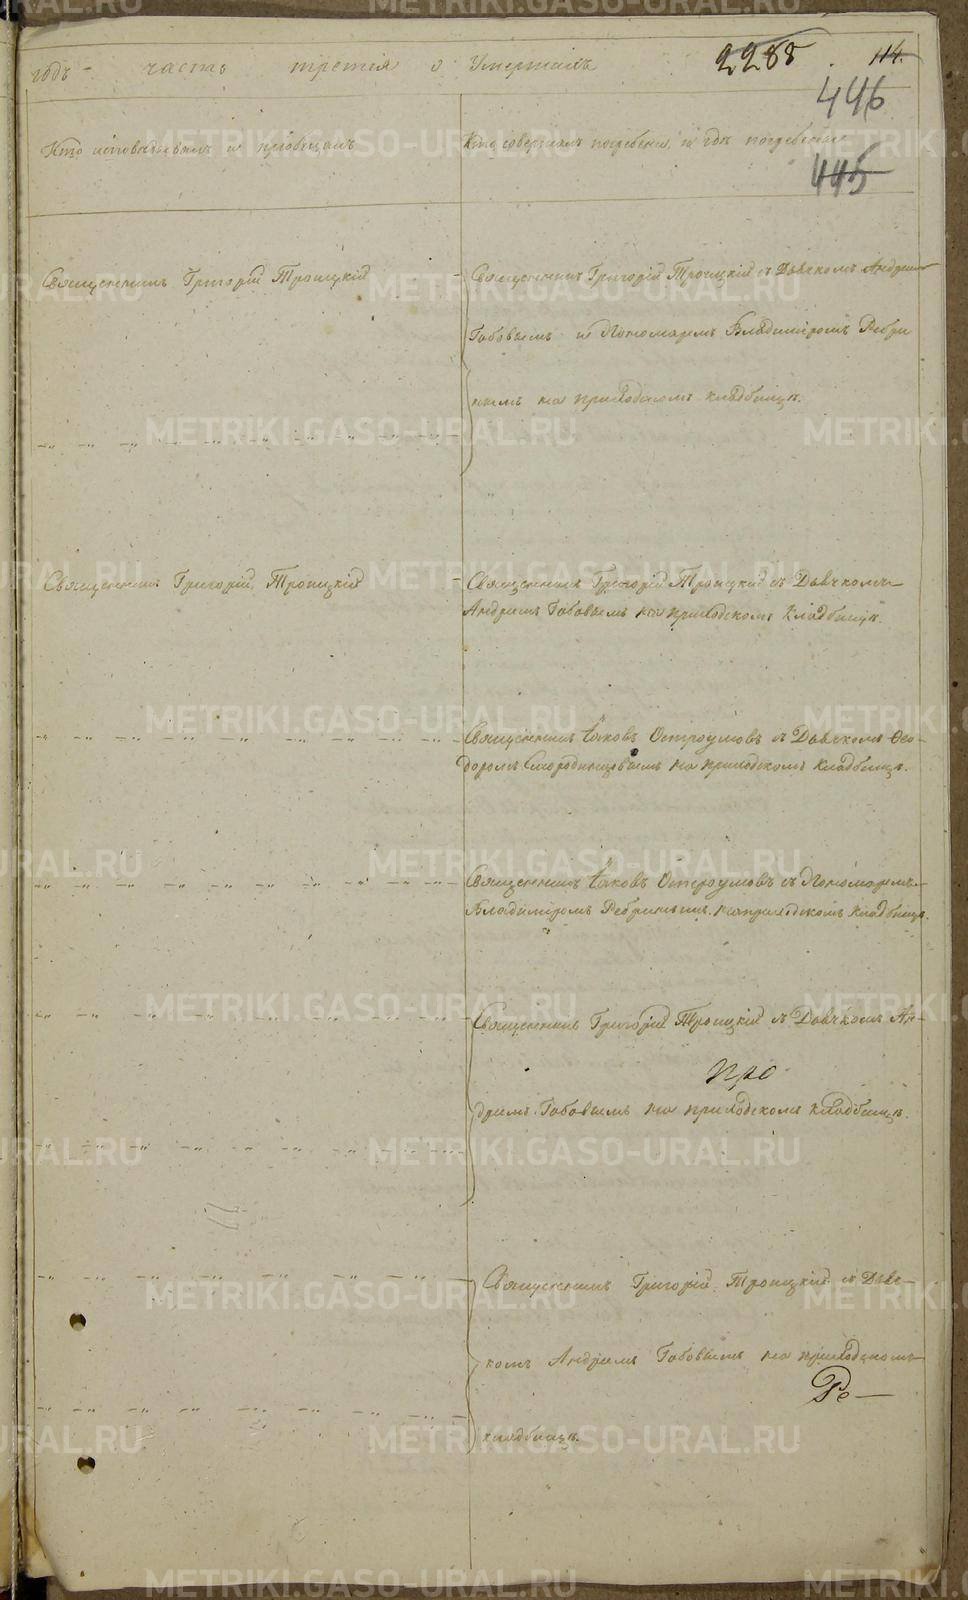 годъ часть третія о Умершихъ 2288 114.
446
Кто исповѣдывалъ и пріобщалъ
Кто совершалъ погребеніе и гдѣ погребены
445
Священникъ Григорій Троицкій
Священникъ Григорій Троицкій съ Дьячкомъ Андреемъ
Бабовымъ и Пономаремъ Владиміромъ Ребри
нымъ на приходскомъ кладбищѣ.
Священникъ Григорій Троицкій
Священникъ Григорій Троицкій съ Дьячкомъ
Андреемъ Бабовымъ на приходскомъ кладбищѣ.
Священникъ Іаковъ Остроумовъ съ Дьячкомъ Ѳео-
доромъ Смородинцовымъ на приходскомъ кладбищѣ.
Священникъ Іаковъ Остроумовъ съ Пономаремъ
Владиміромъ Ребринымъ на приходскомъ кладбищѣ.
Священникъ Григорій Троицкій съ Дьячкомъ Ан-
дреемъ Бабовымъ на приходскомъ кладбищѣ.
Священникъ Григорій Троицкій съ Дьяч-
комъ Андреемъ Бабовымъ на приходскомъ
Ре-
кладбищѣ.
METRIKI.GASO-URAL.RU